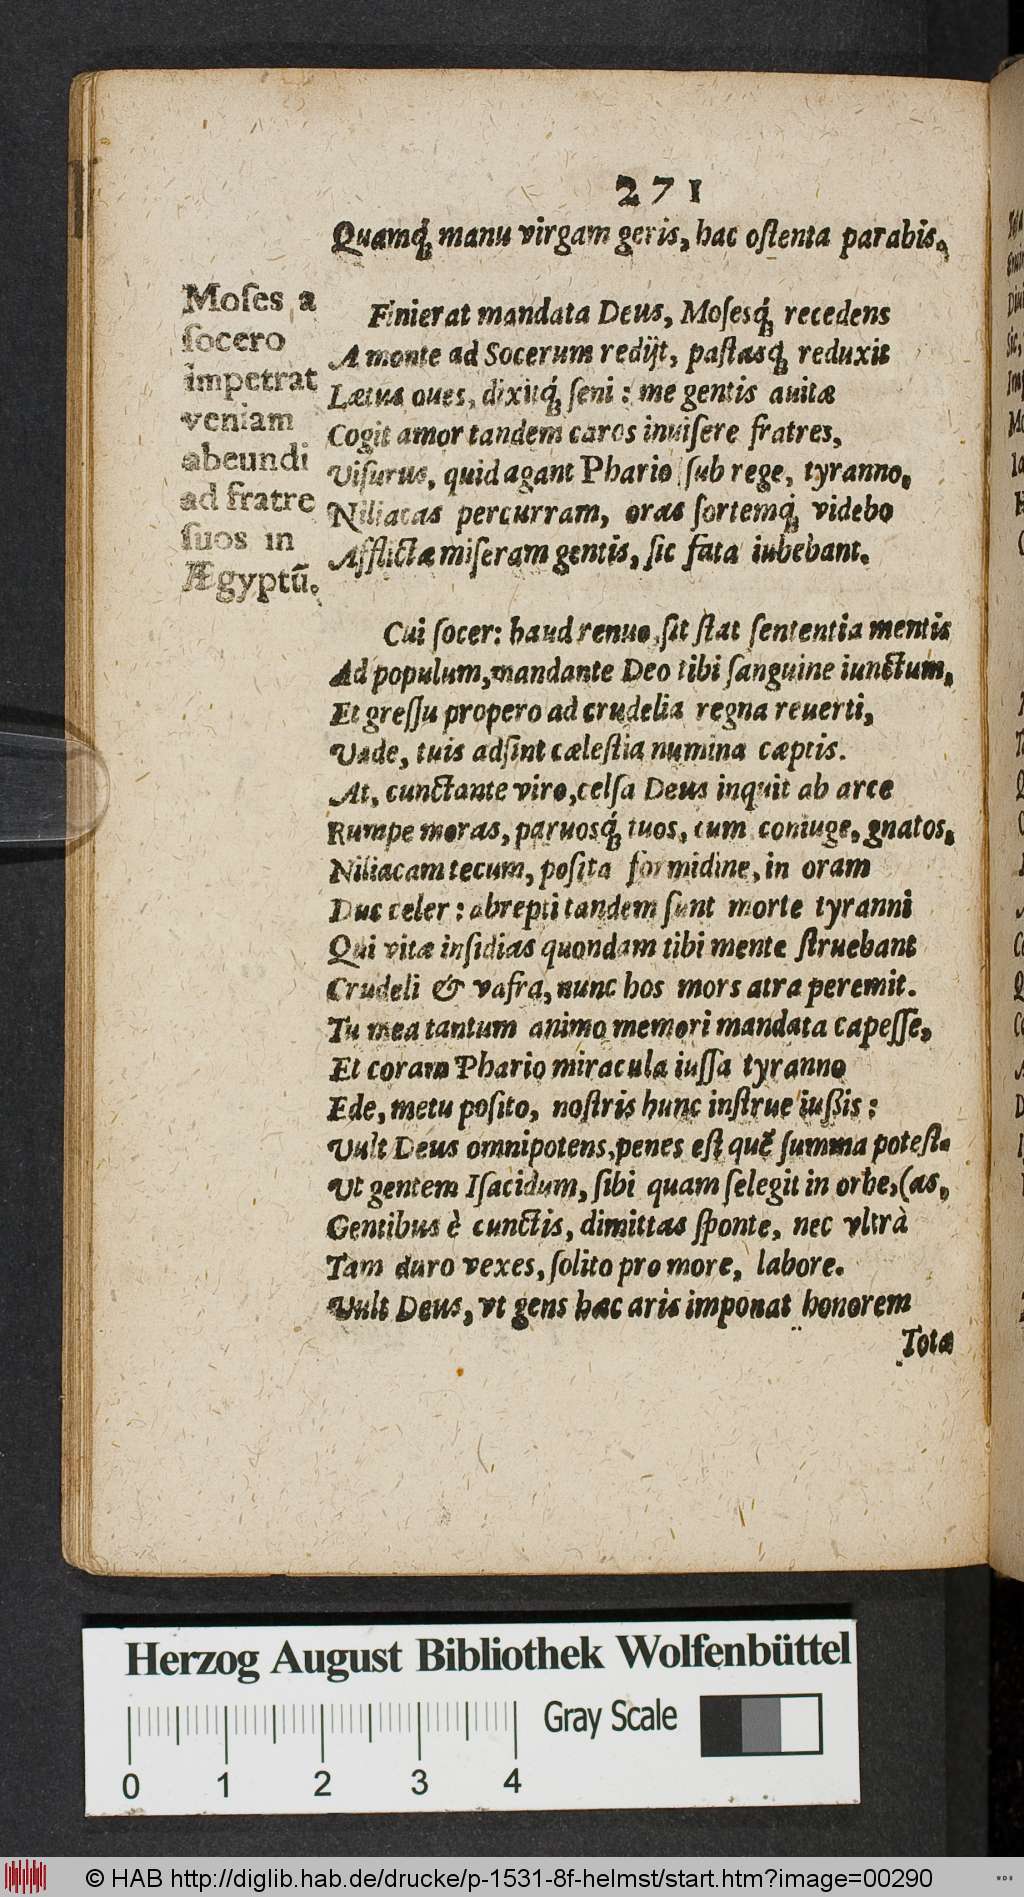 271
Quamq́ȝ manu virgam geris, hac oſtenta parabis.
Moſes a
ſocero
impetrat
veniam
abeundi
ad fratre
ſuos in
Ægyptū.
Finierat mandata Deus, Moſesq́ȝ recedens
A monte ad Socerum redijt, paſtasq́ȝ reduxit
Lætus oues, dixitq́ȝ ſeni : me gentis auitæ
Cogit amor tandem caros inuiſere fratres,
Viſurus, quid agant Phario ſub rege, tyranno,
Niliacas percurram, oras ſortemq́ȝ videbo
Afflictæ miſeram gentis, ſic fata iubebant.
Cui ſocer: haud renuo, ſit ſtat ſententia mentis
Ad populum, mandante Deo tibi ſanguine iunctum,
Et greſſu propero ad crudelia regna reuerti,
Vade, tuis adſint cæleſtia numina cæptis.
At, cunctante viro, celſa Deus inquit ab arce
Rumpe moras, paruosq́ȝ tuos, cum coniuge, gnatos,
Niliacam tecum, poſita formidine, in oram
Duc celer : abrepti tandem ſunt morte tyranni
Qui vitæ inſidias quondam tibi mente ſtruebant
Crudeli & vafra, nunc hos mors atra peremit.
Tu mea tantum animo memori mandata capeſſe,
Et coram Phario miracula iuſſa tyranno
Ede, metu poſito, noſtris hunc inſtrue iuſsis :
Vult Deus omnipotens, penes eſt quē ſumma poteſt-
Vt gentem Iſacidum, ſibi quam ſelegit in orbe, (as,
Gentibus è cunctis, dimittas ſponte, nec vltrà
Tam duro vexes, ſolito pro more, labore.
Vult Deus, vt gens hæc aris imponat honorem
Totæ
Herzog August Bibliothek Wolfenbüttel
Gray Scale
0 1 2 3 4
© HAB http://diglib.hab.de/drucke/p-1531-8f-helmst/start.htm?image=00290